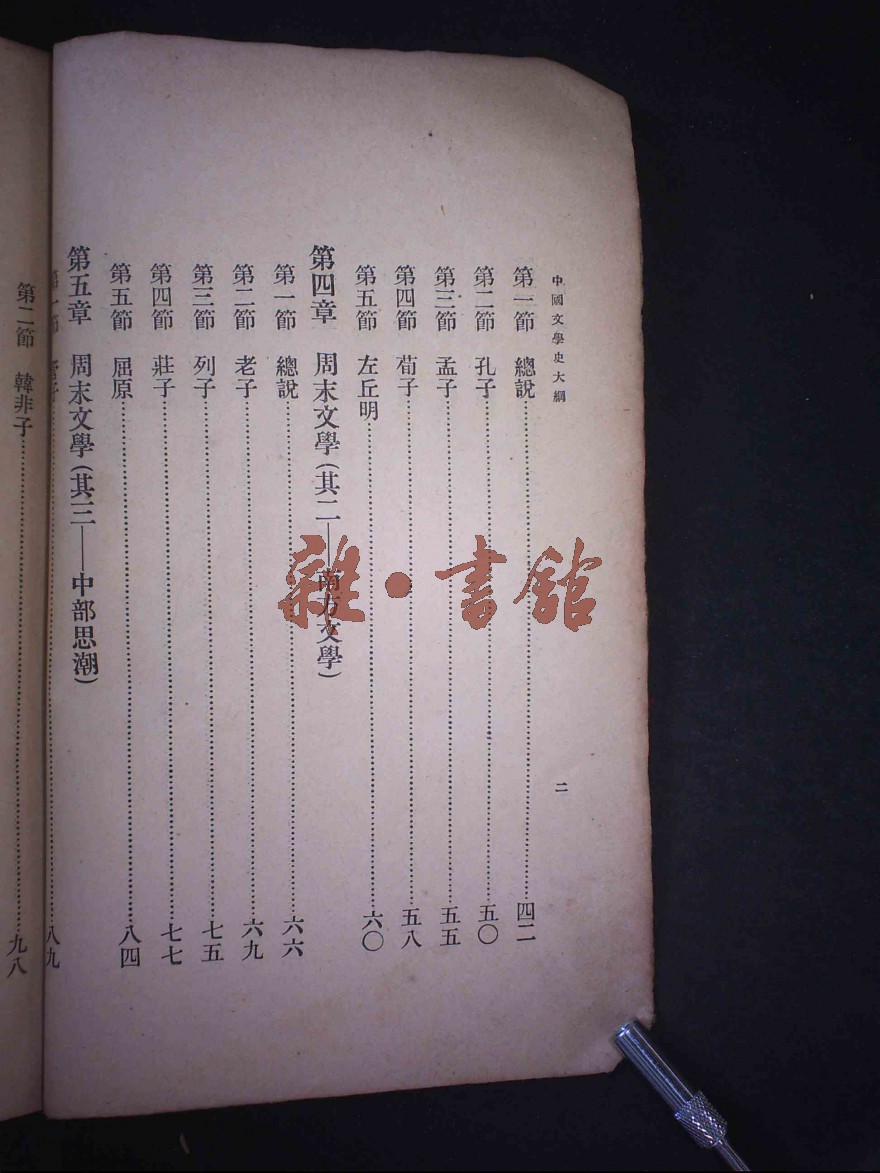 中國文學史大綱
二
第一節 總說 四二
第二節 孔子 五〇
第三節 孟子 五五
第四節 荀子 五八
第五節 左丘明 六〇
第四章 周末文學(其二——南方文學)
第一節 總說 六六
第二節 老子 六九
第三節 列子 七五
第四節 莊子 七七
第五節 屈原 八四
第五章 周末文學(其三——中部思潮)
第一節 管子 八九
第二節 韓非子 九八
雜·書館